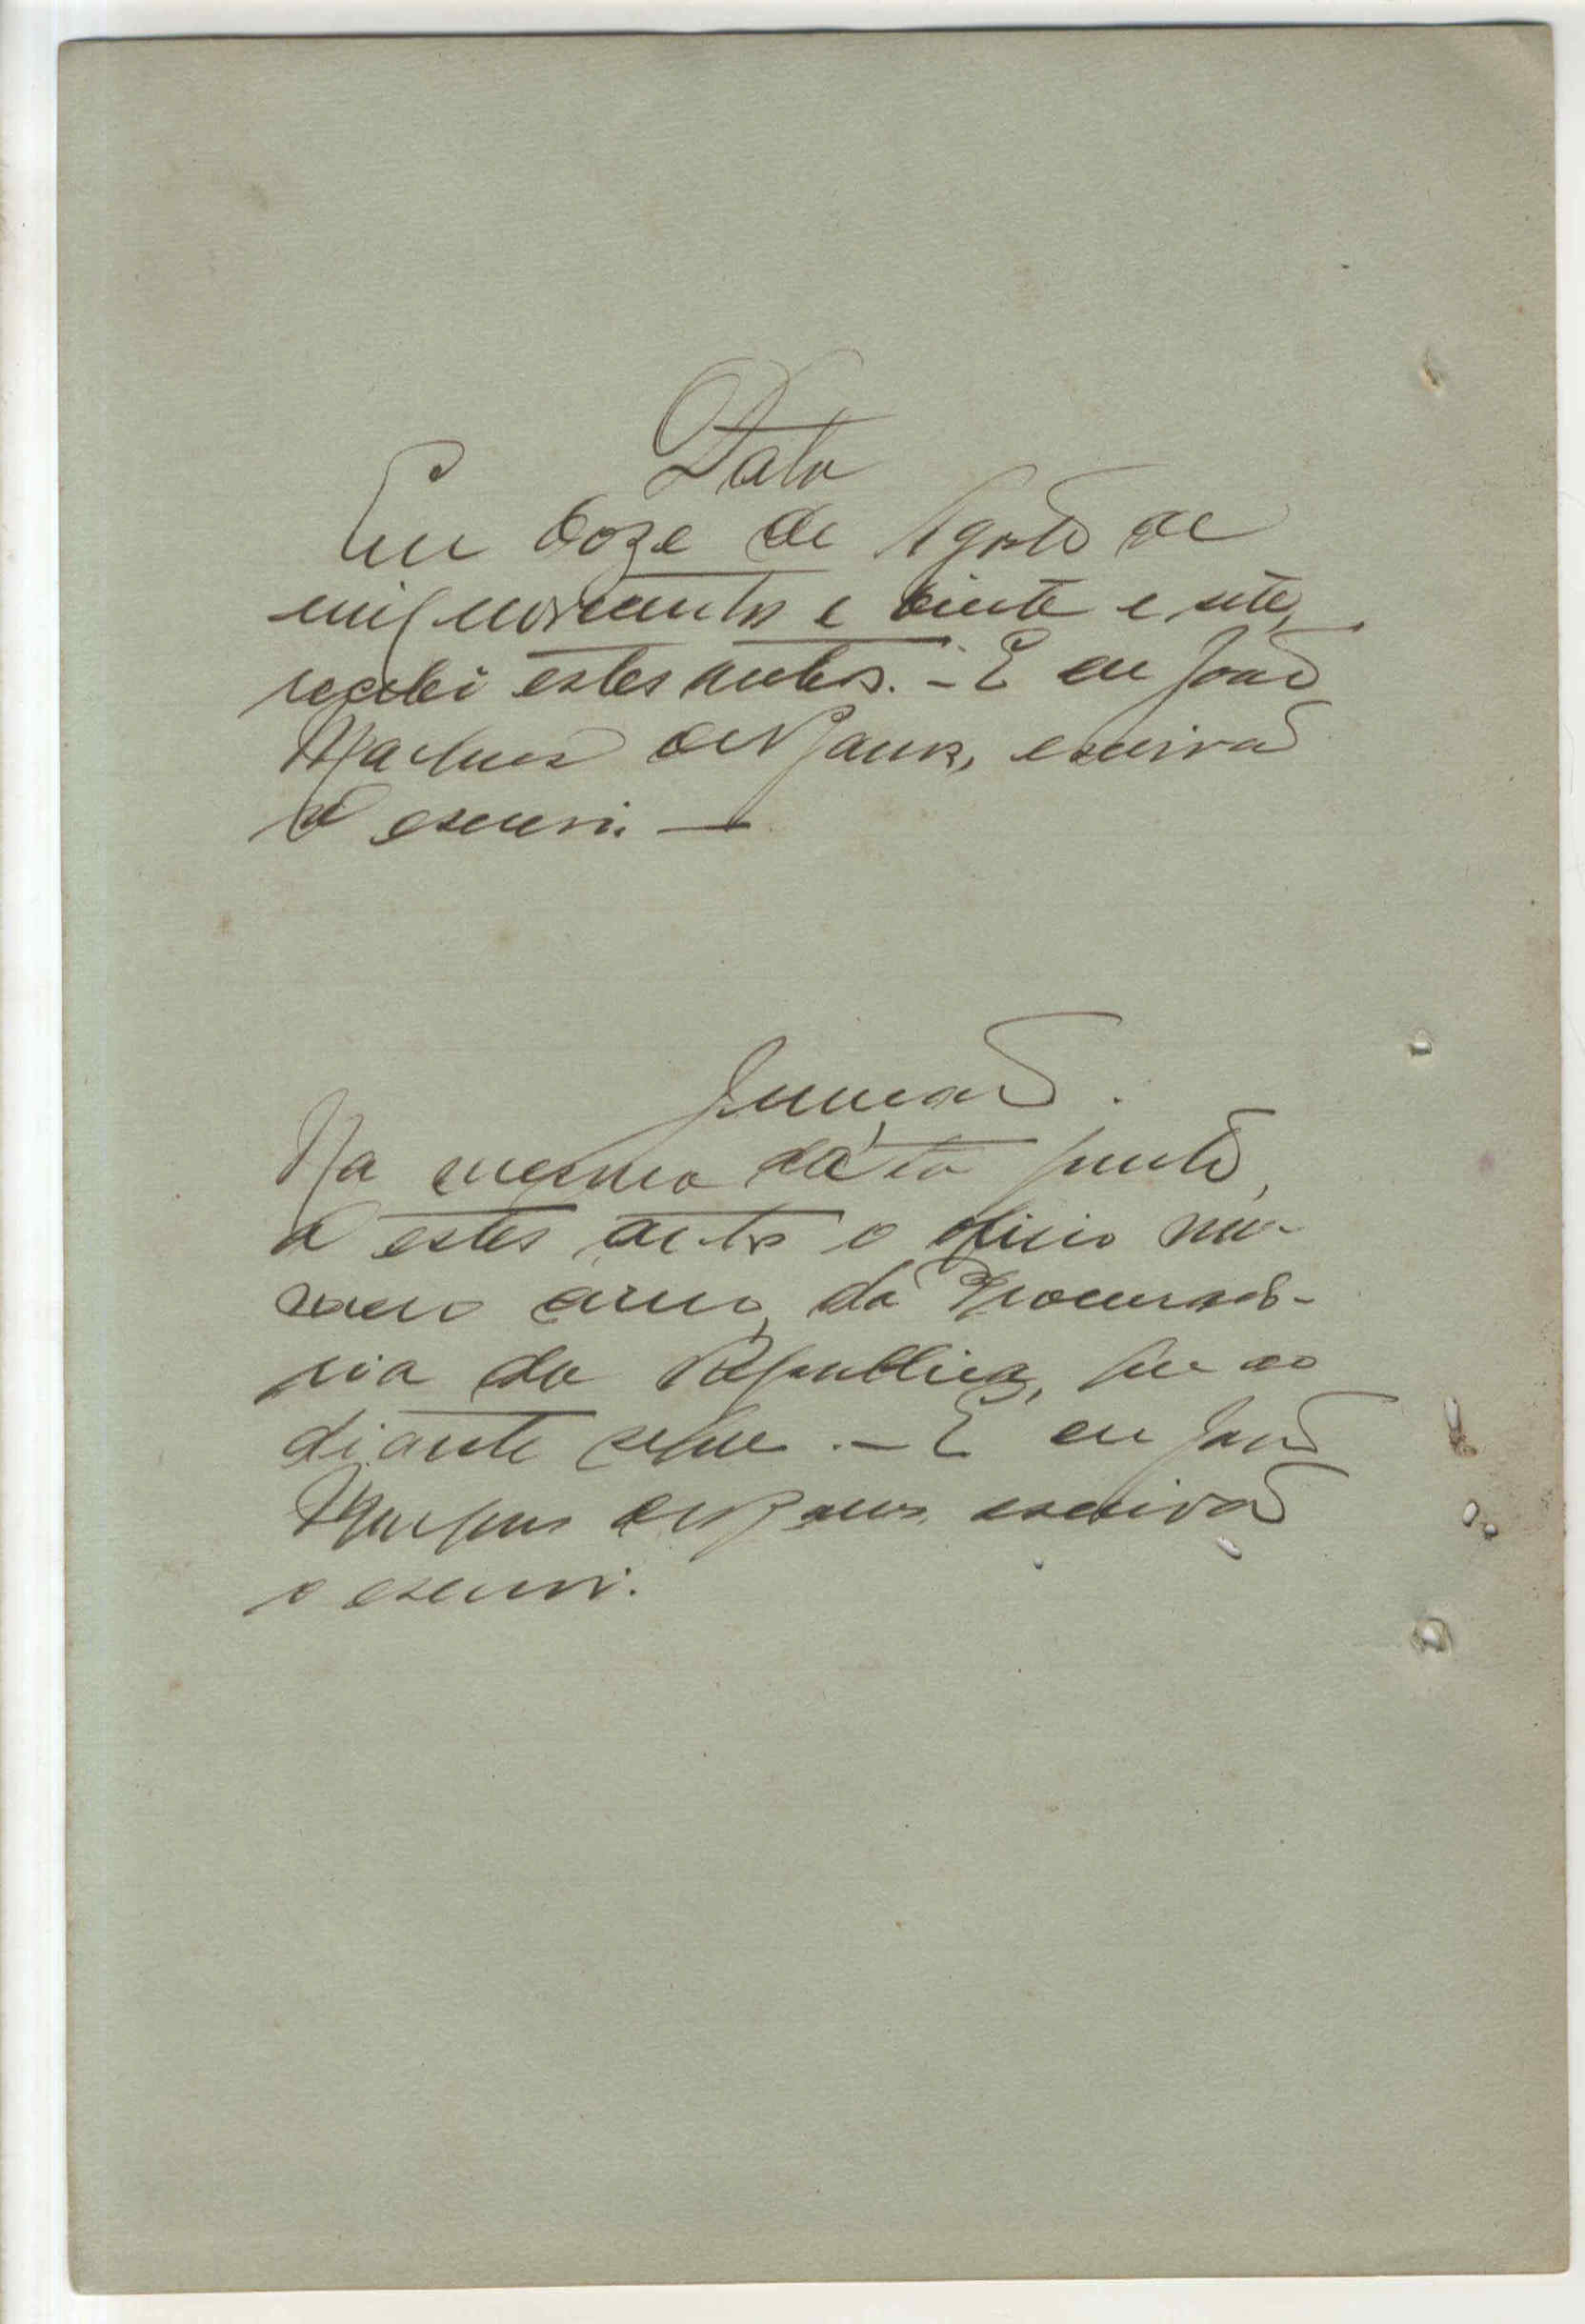 Data
Em doze de Agosto de
mil novecentos e vinte e sete,
recebi estes autos. - E eu João
Marques escrivão
o escrevi. -
Juncção.
Na mesma data junto,
a estes autos o oficio nu-
mero da Procurado-
ria da Republica, que ao
diante segue. - E eu João
Marques escrivão
o escrevi.